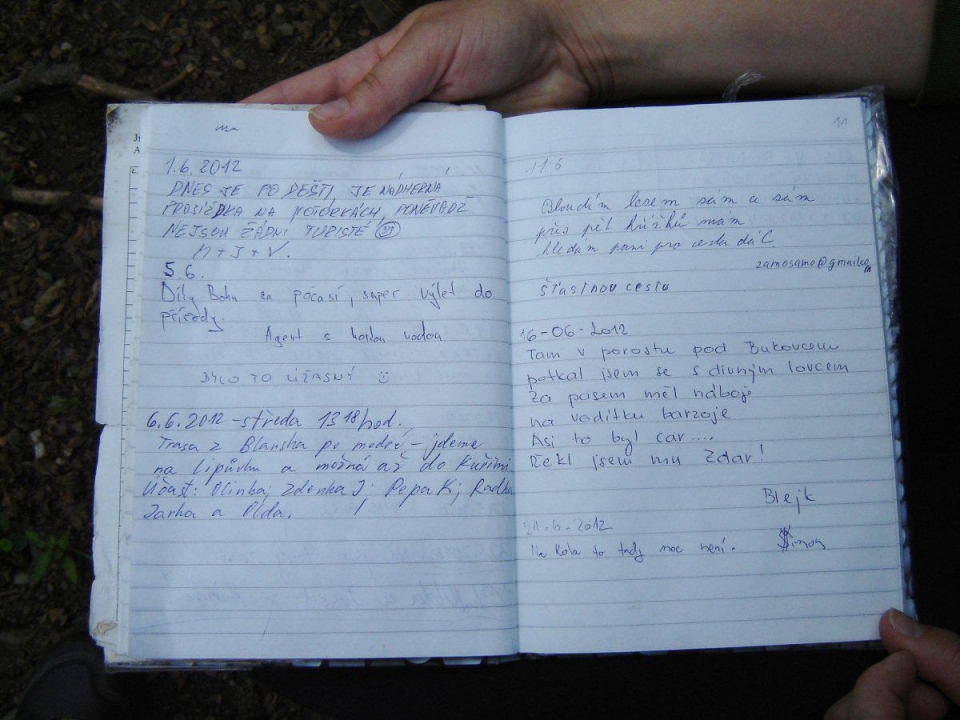 1.6.2012
DNES JE PO DEŠTI, JE NÁDHERNÁ
PROJÍŽĎKA NA MOTORKÁCH, PONĚVADŽ
NEJSOU ŽÁDNÍ TURISTÉ
M + J + V.
5.6.
Díky Bohu za počasí, super výlet do
přírody.
Agent s horkou vodou
BYLO TO ÚŽASNÝ
6.6.2012 - středa 13 18 hod.
Trasa z Blanska po modré - jdeme
na Lipůvku a možná až do Kuřimi
Účast: Olinka, Zdenka J, Pepa K, Radka
Jarka a Olda.
Bloudím lesem sám a sám
přes pět křížků mám
hledám paní pro cestu dál.
Šťastnou cestu
16-06-2012
Tam v porostu pod Bukovcem
potkal jsem se s divným lovcem
Za pasem měl náboje
na vodítku barzoje
Asi to byl car....
Řekl jsem mu Zdar!
Blejk
21-6-2012
Na kola to tady moc není. Šimon